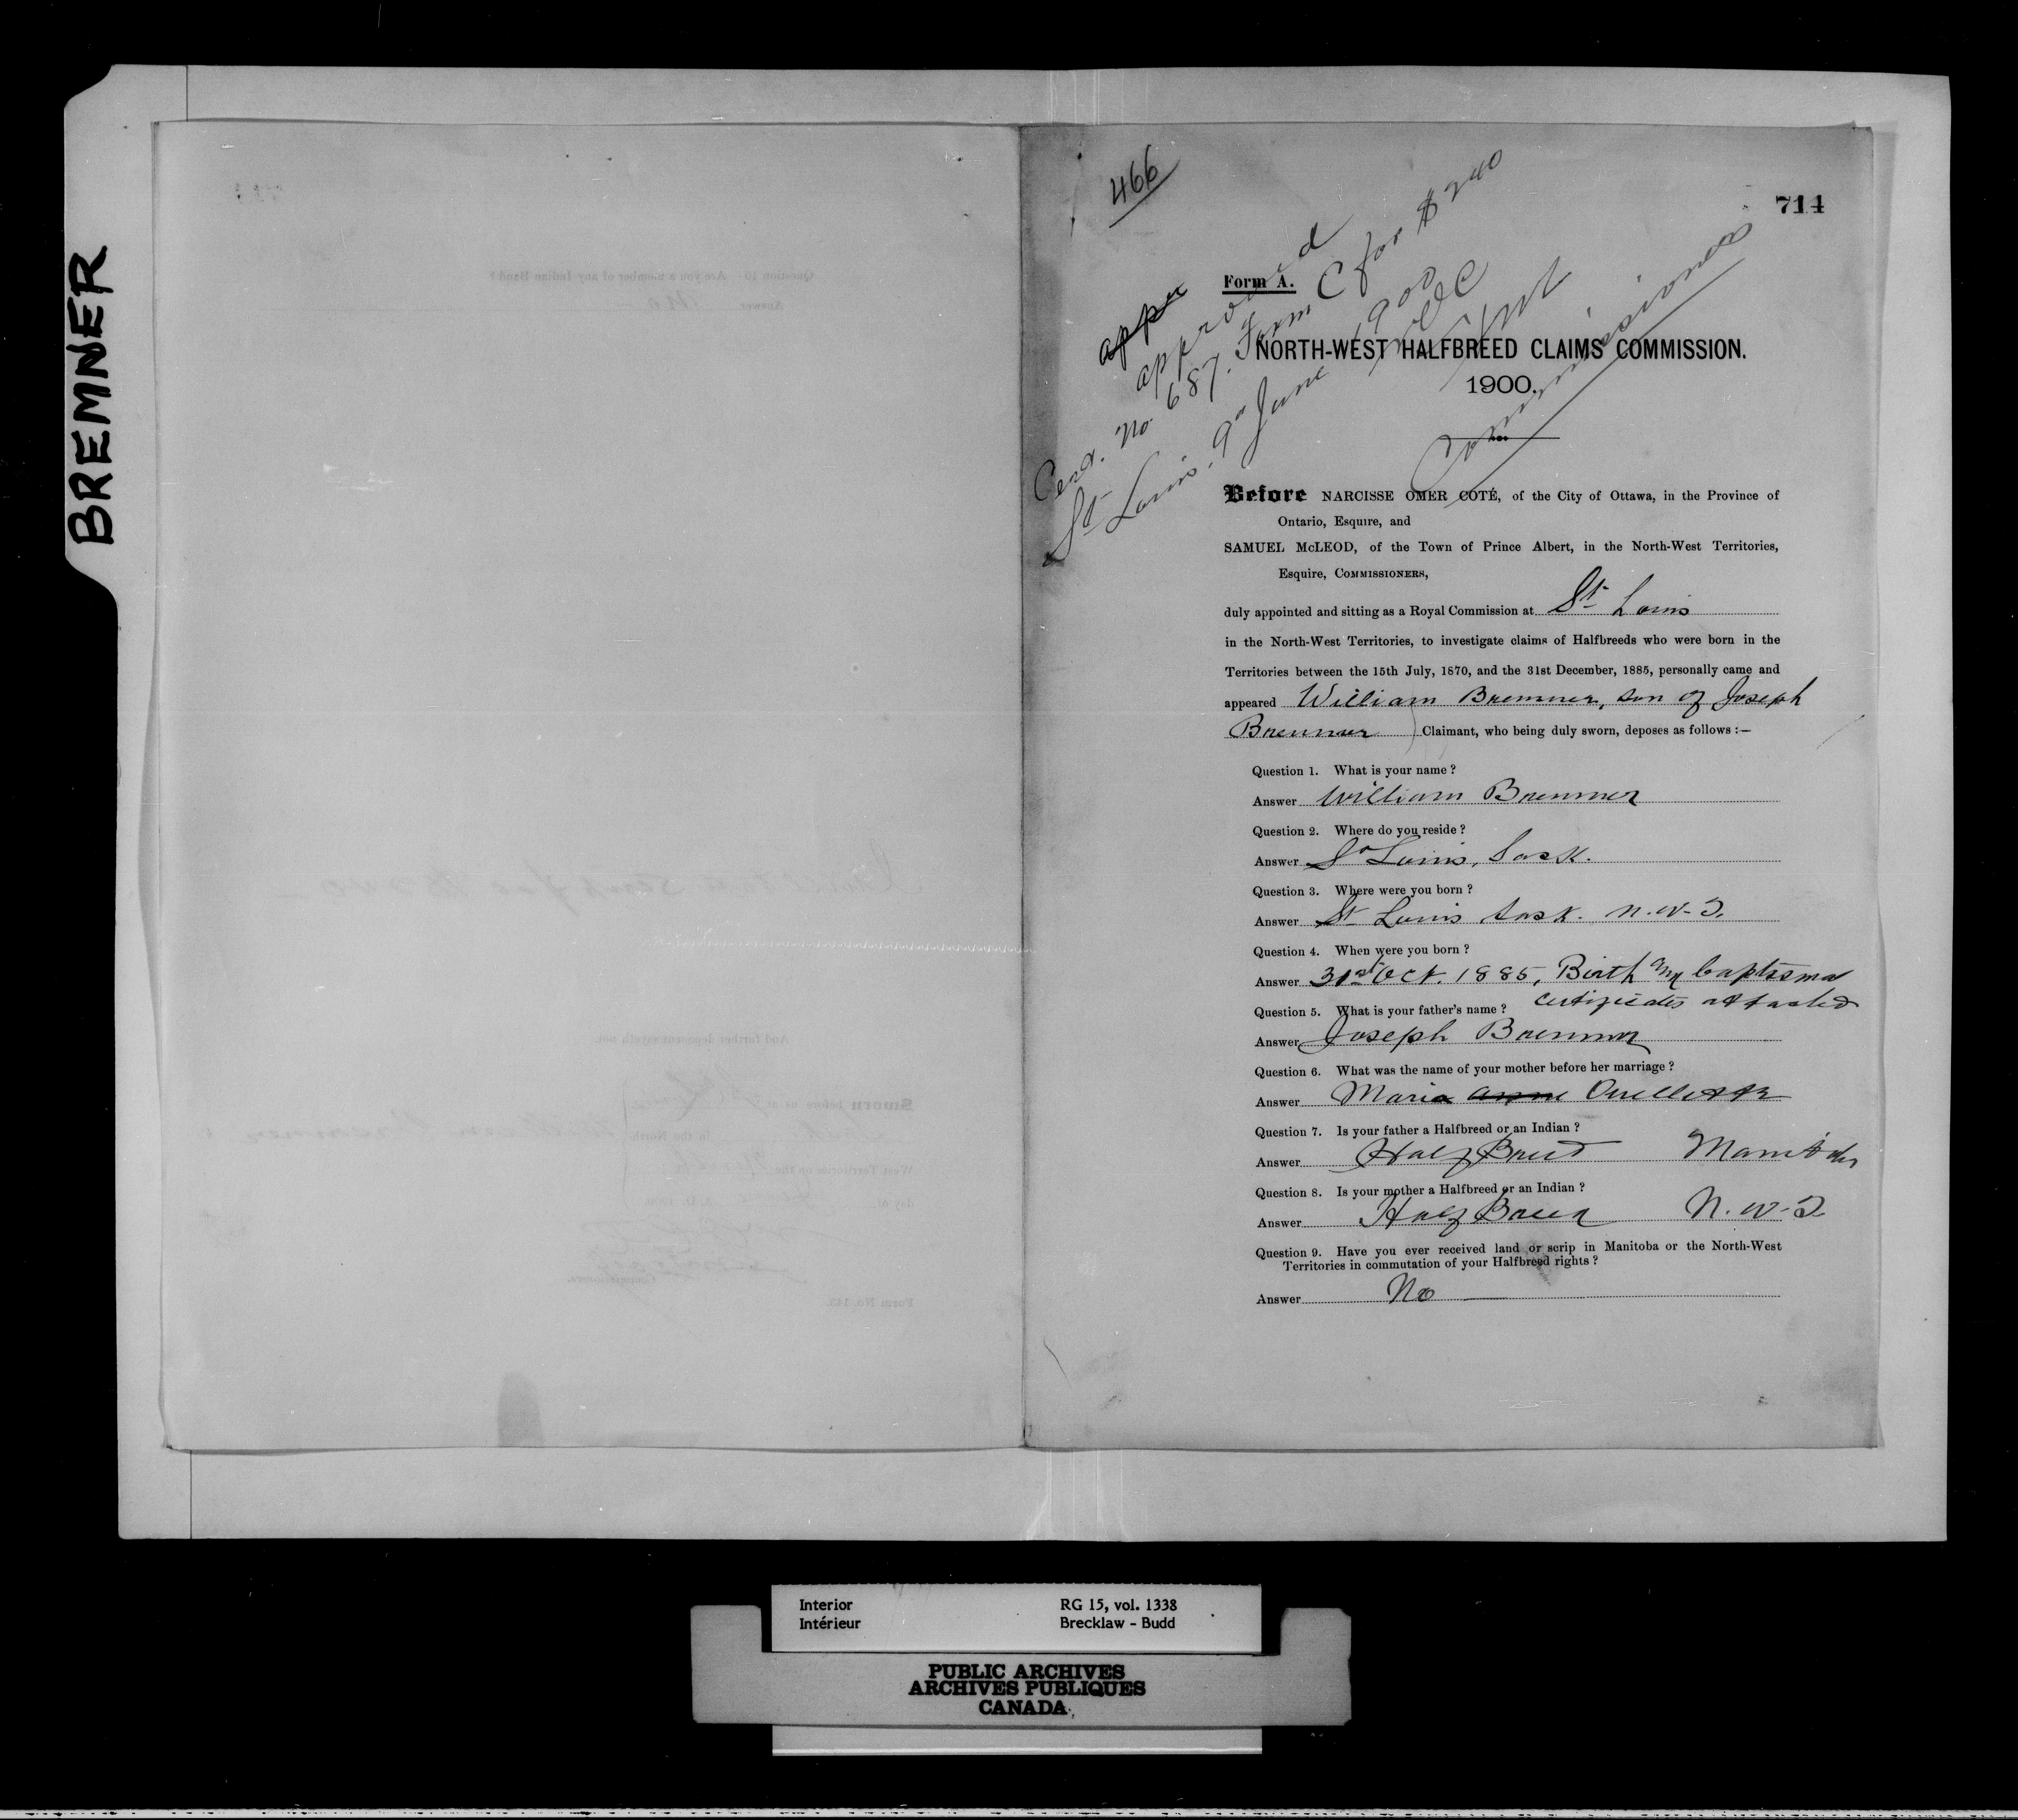 BREMNER
466
714
appr
approved
Cert. No 687. Form C for $240
St Louis. 9th June 1900
Commissioners
Form A.
NORTH-WEST HALFBREED CLAIMS COMMISSION.
1900.
Before NARCISSE OMER COTÉ, of the City of Ottawa, in the Province of
Ontario, Esquire, and
SAMUEL McLEOD, of the Town of Prince Albert, in the North-West Territories,
Esquire, COMMISSIONERS,
duly appointed and sitting as a Royal Commission at St Louis
in the North-West Territories, to investigate claims of Halfbreeds who were born in the
Territories between the 15th July, 1870, and the 31st December, 1885, personally came and
appeared William Bremner, son of Joseph
Bremner Claimant, who being duly sworn, deposes as follows :—
Question 1. What is your name ?
Answer William Bremner
Question 2. Where do you reside ?
Answer St Louis, Sask.
Question 3. Where were you born ?
Answer St Louis Sask. N.W.T.
Question 4. When were you born ?
Answer 31st Oct. 1885, Birth and baptismal
certificates attached
Question 5. What is your father's name ?
Answer Joseph Bremner
Question 6. What was the name of your mother before her marriage ?
Answer Maria Anne Ouellette
Question 7. Is your father a Halfbreed or an Indian ?
Answer Half Breed Manitoba
Question 8. Is your mother a Halfbreed or an Indian ?
Answer Half Breed N.W.T.
Question 9. Have you ever received land or scrip in Manitoba or the North-West
Territories in commutation of your Halfbreed rights ?
Answer No
Interior RG 15, vol. 1338
Intérieur Brecklaw - Budd
PUBLIC ARCHIVES
ARCHIVES PUBLIQUES
CANADA